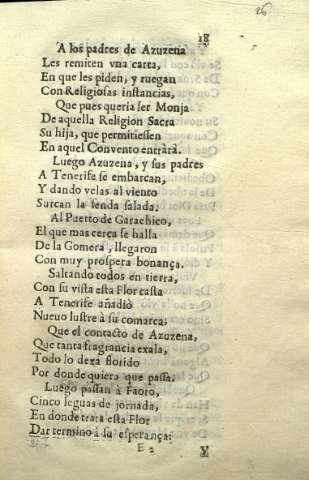 26
18
A los padres de Azuzena
Les remiten vna carta,
En que les piden, y ruegan
Con Religiosas instancias,
Que pues queria ser Monja
De aquella Religion Sacra
Su hija, que permitiessen
En aquel Convento entràra.
Luego Azuzena, y sus padres
A Tenerife se embarcan,
Y dando velas al viento
Surcan la senda salada.
Al Puerto de Garachico,
El que mas cerca se halla
De la Gomera, llegaron
Con muy prospera bonança.
Saltando todos en tierra,
Con su vista esta Flor casta
A Tenerife añadiò
Nuevo lustre à su comarca.
Que el contacto de Azuzena,
Que tanta fragrancia exala,
Todo lo dexa florido
Por donde quiera que passa.
Luego passan à Faoro,
Cinco leguas de jornada,
En donde trata esta Flor
Dar termino à su esperança:
E 2
Y